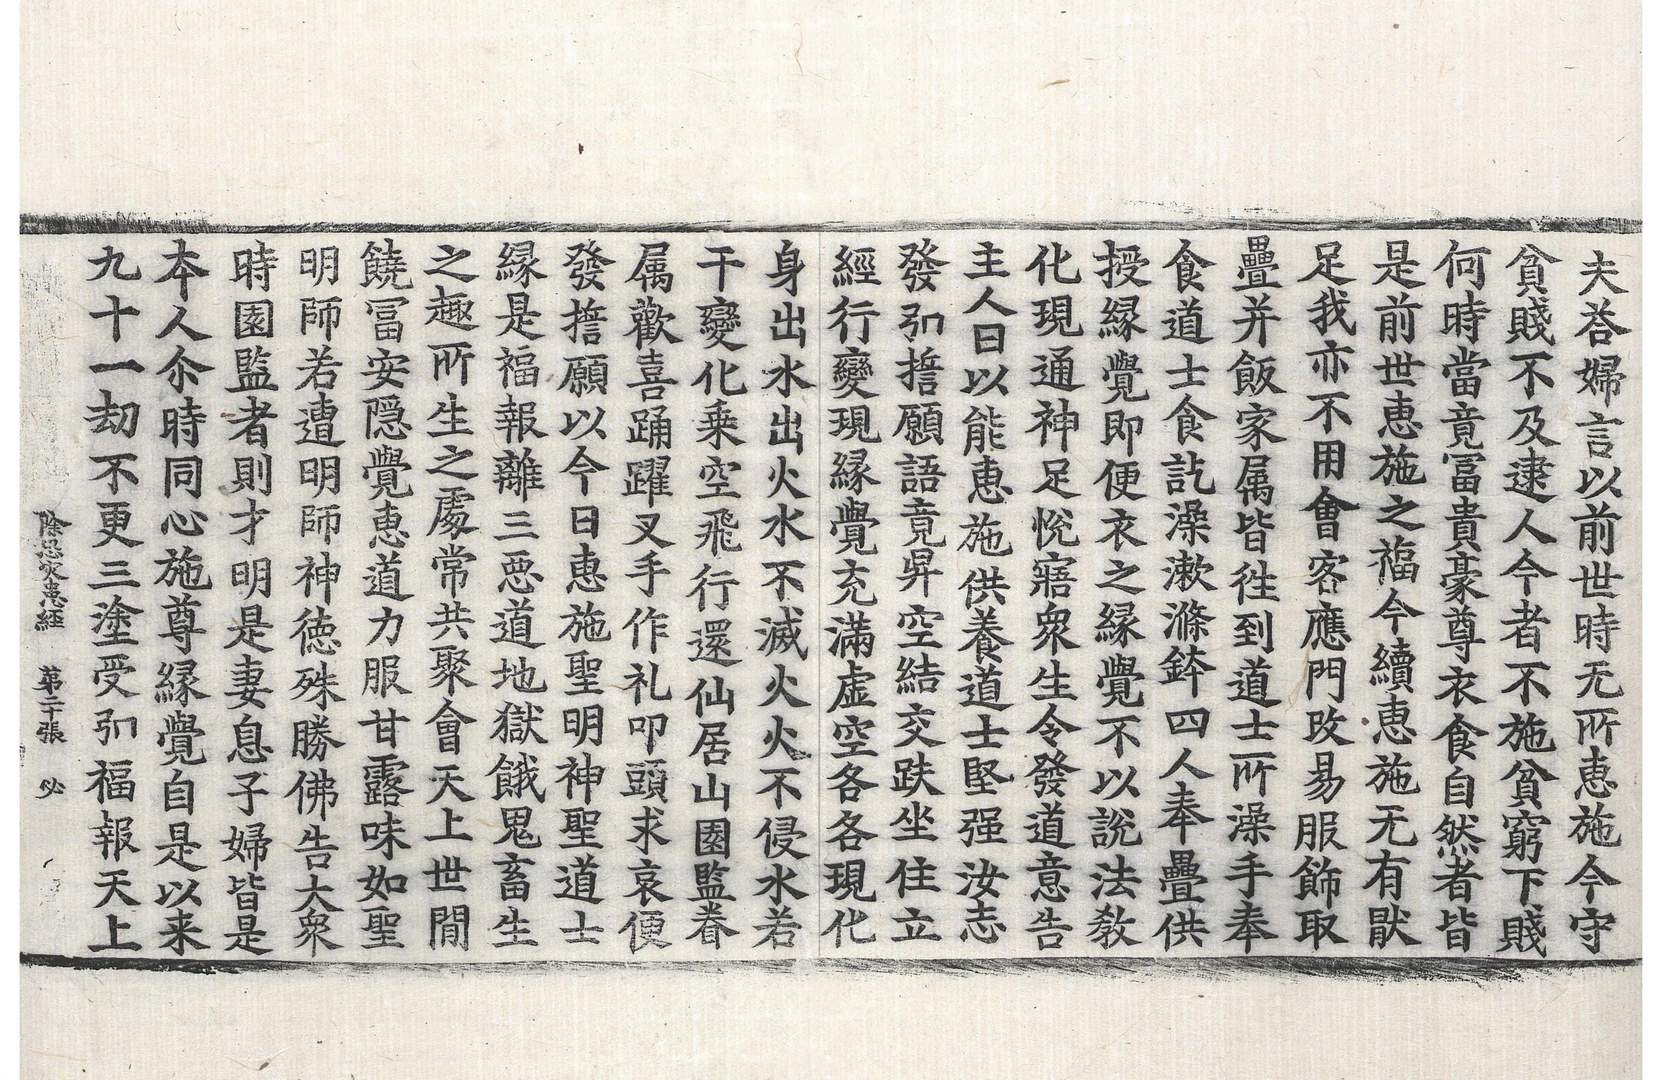 夫荅婦言以前世時无所恵施今守
貧賤不及逮人今者不施貧窮下賤
何時當竟冨貴豪尊衣食自然者皆
是前世恵施之福今續恵施无有猒
足我亦不用會客應門改易服飾取
疊并飯家属皆徃到道士所澡手奉
食道士食訖澡漱滌鉢四人奉疊供
授縁覺即便衣之縁覺不以說法教
化現通神足悅寤衆生令發道意告
主人曰以能恵施供養道士堅强汝志
發弘擔願語竟昇空結交趺坐住立
經行變現縁覺充滿虚空各各現化
身出水出火水不滅火火不侵水若
干變化乗空飛行還仙居山園監眷
属歡喜踊躍叉手作礼叩頭求哀便
發擔願以今日恵施聖明神聖道士
縁是福報離三恶道地獄餓鬼畜生
之趣所生之處常共聚會天上世間
饒冨安隠覺恵道力服甘露味如聖
明師若遭明師神徳殊勝佛告大衆
時園監者則才明是妻息子婦皆是
夲人尒時同心施尊縁覺自是以来
九十一劫不更三塗受弘福報天上
除恐灾患経 第二十張 必